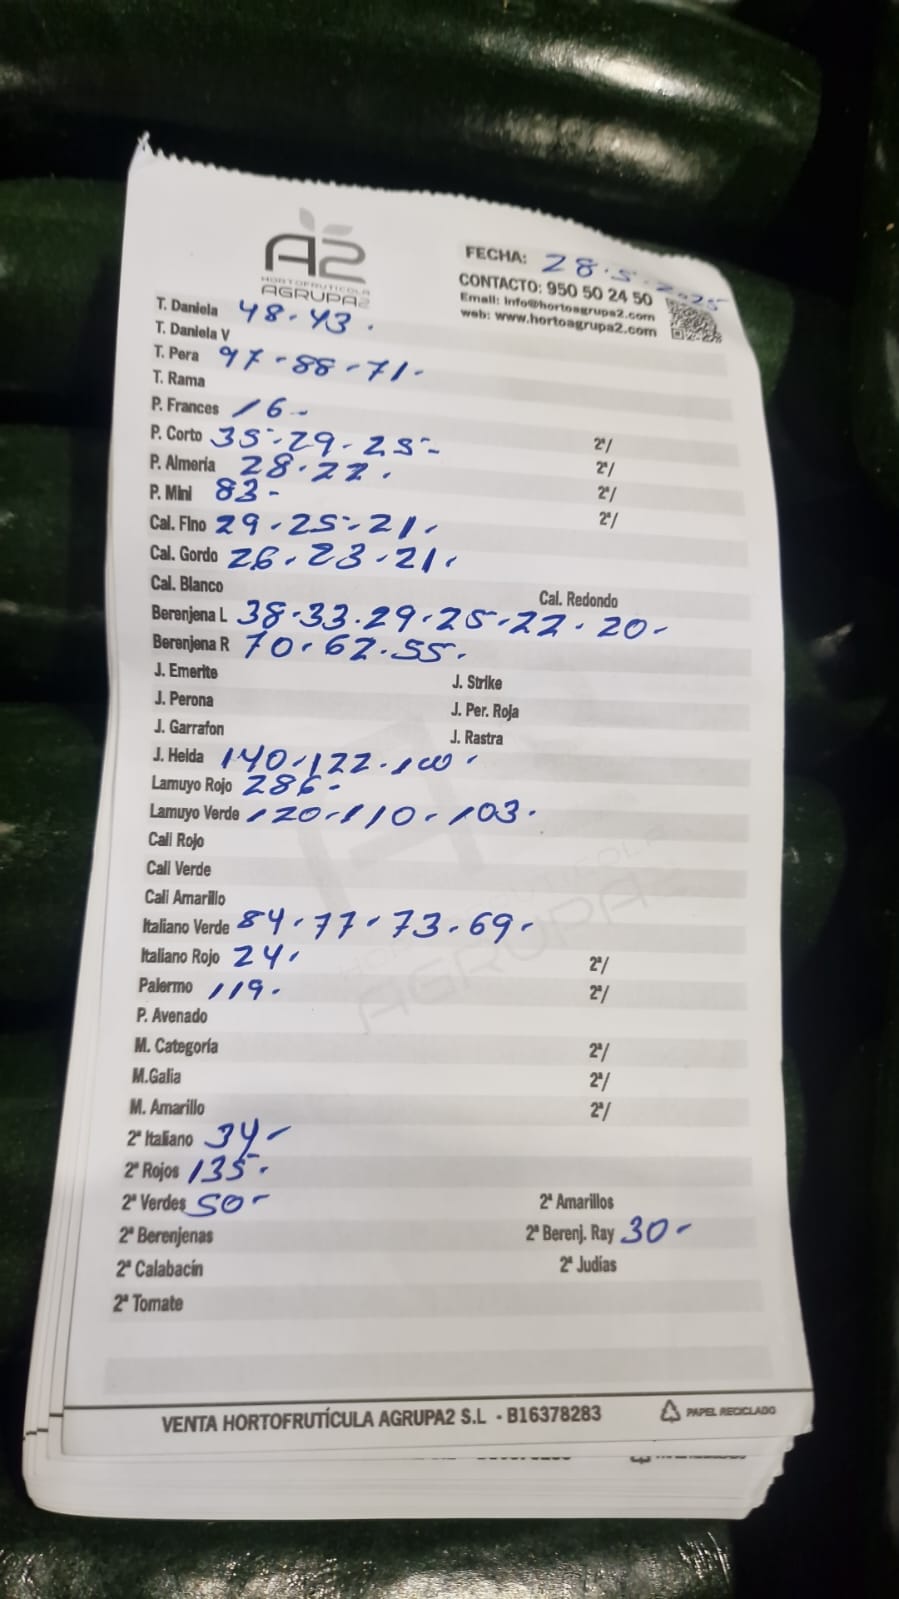 A2
HORTOFRUTICOLA
AGRUPA2
FECHA: 28.5.2025
CONTACTO: 950 50 24 50
Email: info@hortoagrupa2.com
web: www.hortoagrupa2.com
T. Daniela 48.43.
T. Daniela V
T. Pera 97-88-71-
T. Rama
P. Frances 16-
P. Corto 35-29-25- 2ª/
P. Almería 28.22. 2ª/
P. Mini 83- 2ª/
Cal. Fino 29.25.21. 2ª/
Cal. Gordo 26.23.21.
Cal. Blanco Cal. Redondo
Berenjena L 38.33.29.25.22.20-
Berenjena R 70.62.55.
J. Emerite J. Strike
J. Perona J. Per. Roja
J. Garrafon J. Rastra
J. Helda 140.122.100.
Lamuyo Rojo 286-
Lamuyo Verde 120.110.103.
Cali Rojo
Cali Verde
Cali Amarillo
Italiano Verde 84.77.73.69.
Italiano Rojo 24. 2ª/
Palermo 119. 2ª/
P. Avenado
M. Categoría 2ª/
M.Galia 2ª/
M. Amarillo 2ª/
2ª Italiano 34-
2ª Rojos 135.
2ª Verdes 50- 2ª Amarillos
2ª Berenjenas 2ª Berenj. Ray 30-
2ª Calabacín 2ª Judías
2ª Tomate
VENTA HORTOFRUTÍCULA AGRUPA2 S.L - B16378283 PAPEL RECICLADO